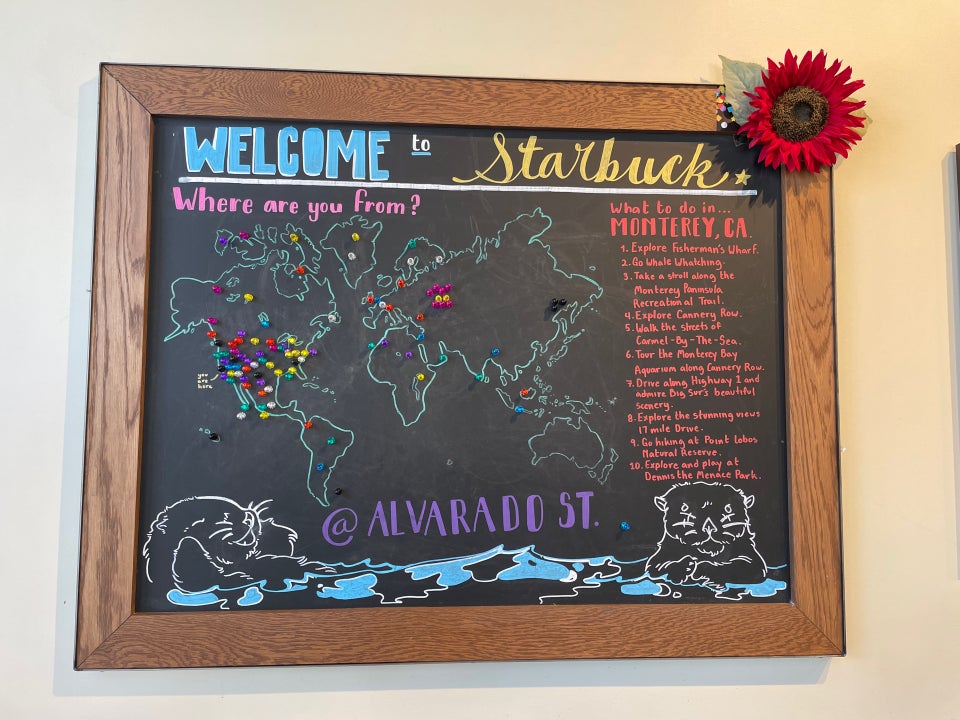 WELCOME to Starbuck
Where are you from?
you
are
here
What to do in...
MONTEREY, CA.
1. Explore Fisherman's Wharf.
2. Go Whale Whatching.
3. Take a stroll along the
Monterey Paninsula
Recreational Trail.
4. Explore Cannery Row.
5. Walk the streets of
Carmel-By-The-Sea.
6. Tour the Monterey Bay
Aquarium along Cannery Row.
7. Drive along Highway 1 and
admire Big Sur's beautiful
scenery.
8. Explore the stunning views
17 mile Drive.
9. Go hiking at Point Lobos
Natural Reserve.
10. Explore and play at
Dennis the Menace Park.
@ ALVARADO ST.